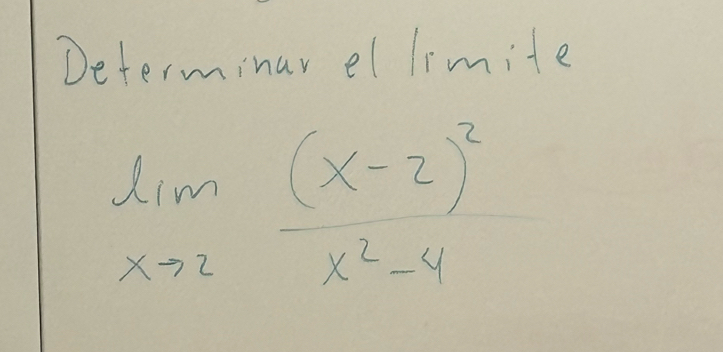 Determinar el limite
lim (x-2)²
x→2 x²-4